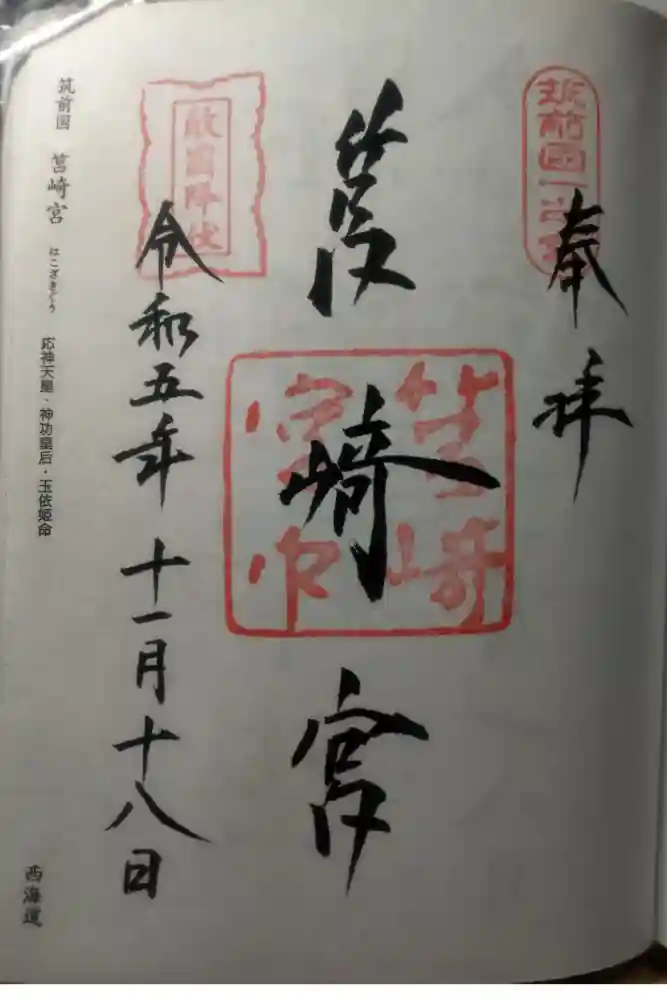 筑前國一之宮
奉拝
筥崎宮
筥崎宮
敵國降伏
令和五年十一月十八日
筑前国 筥崎宮 はこざきぐう 応神天皇・神功皇后・玉依姫命
西海道